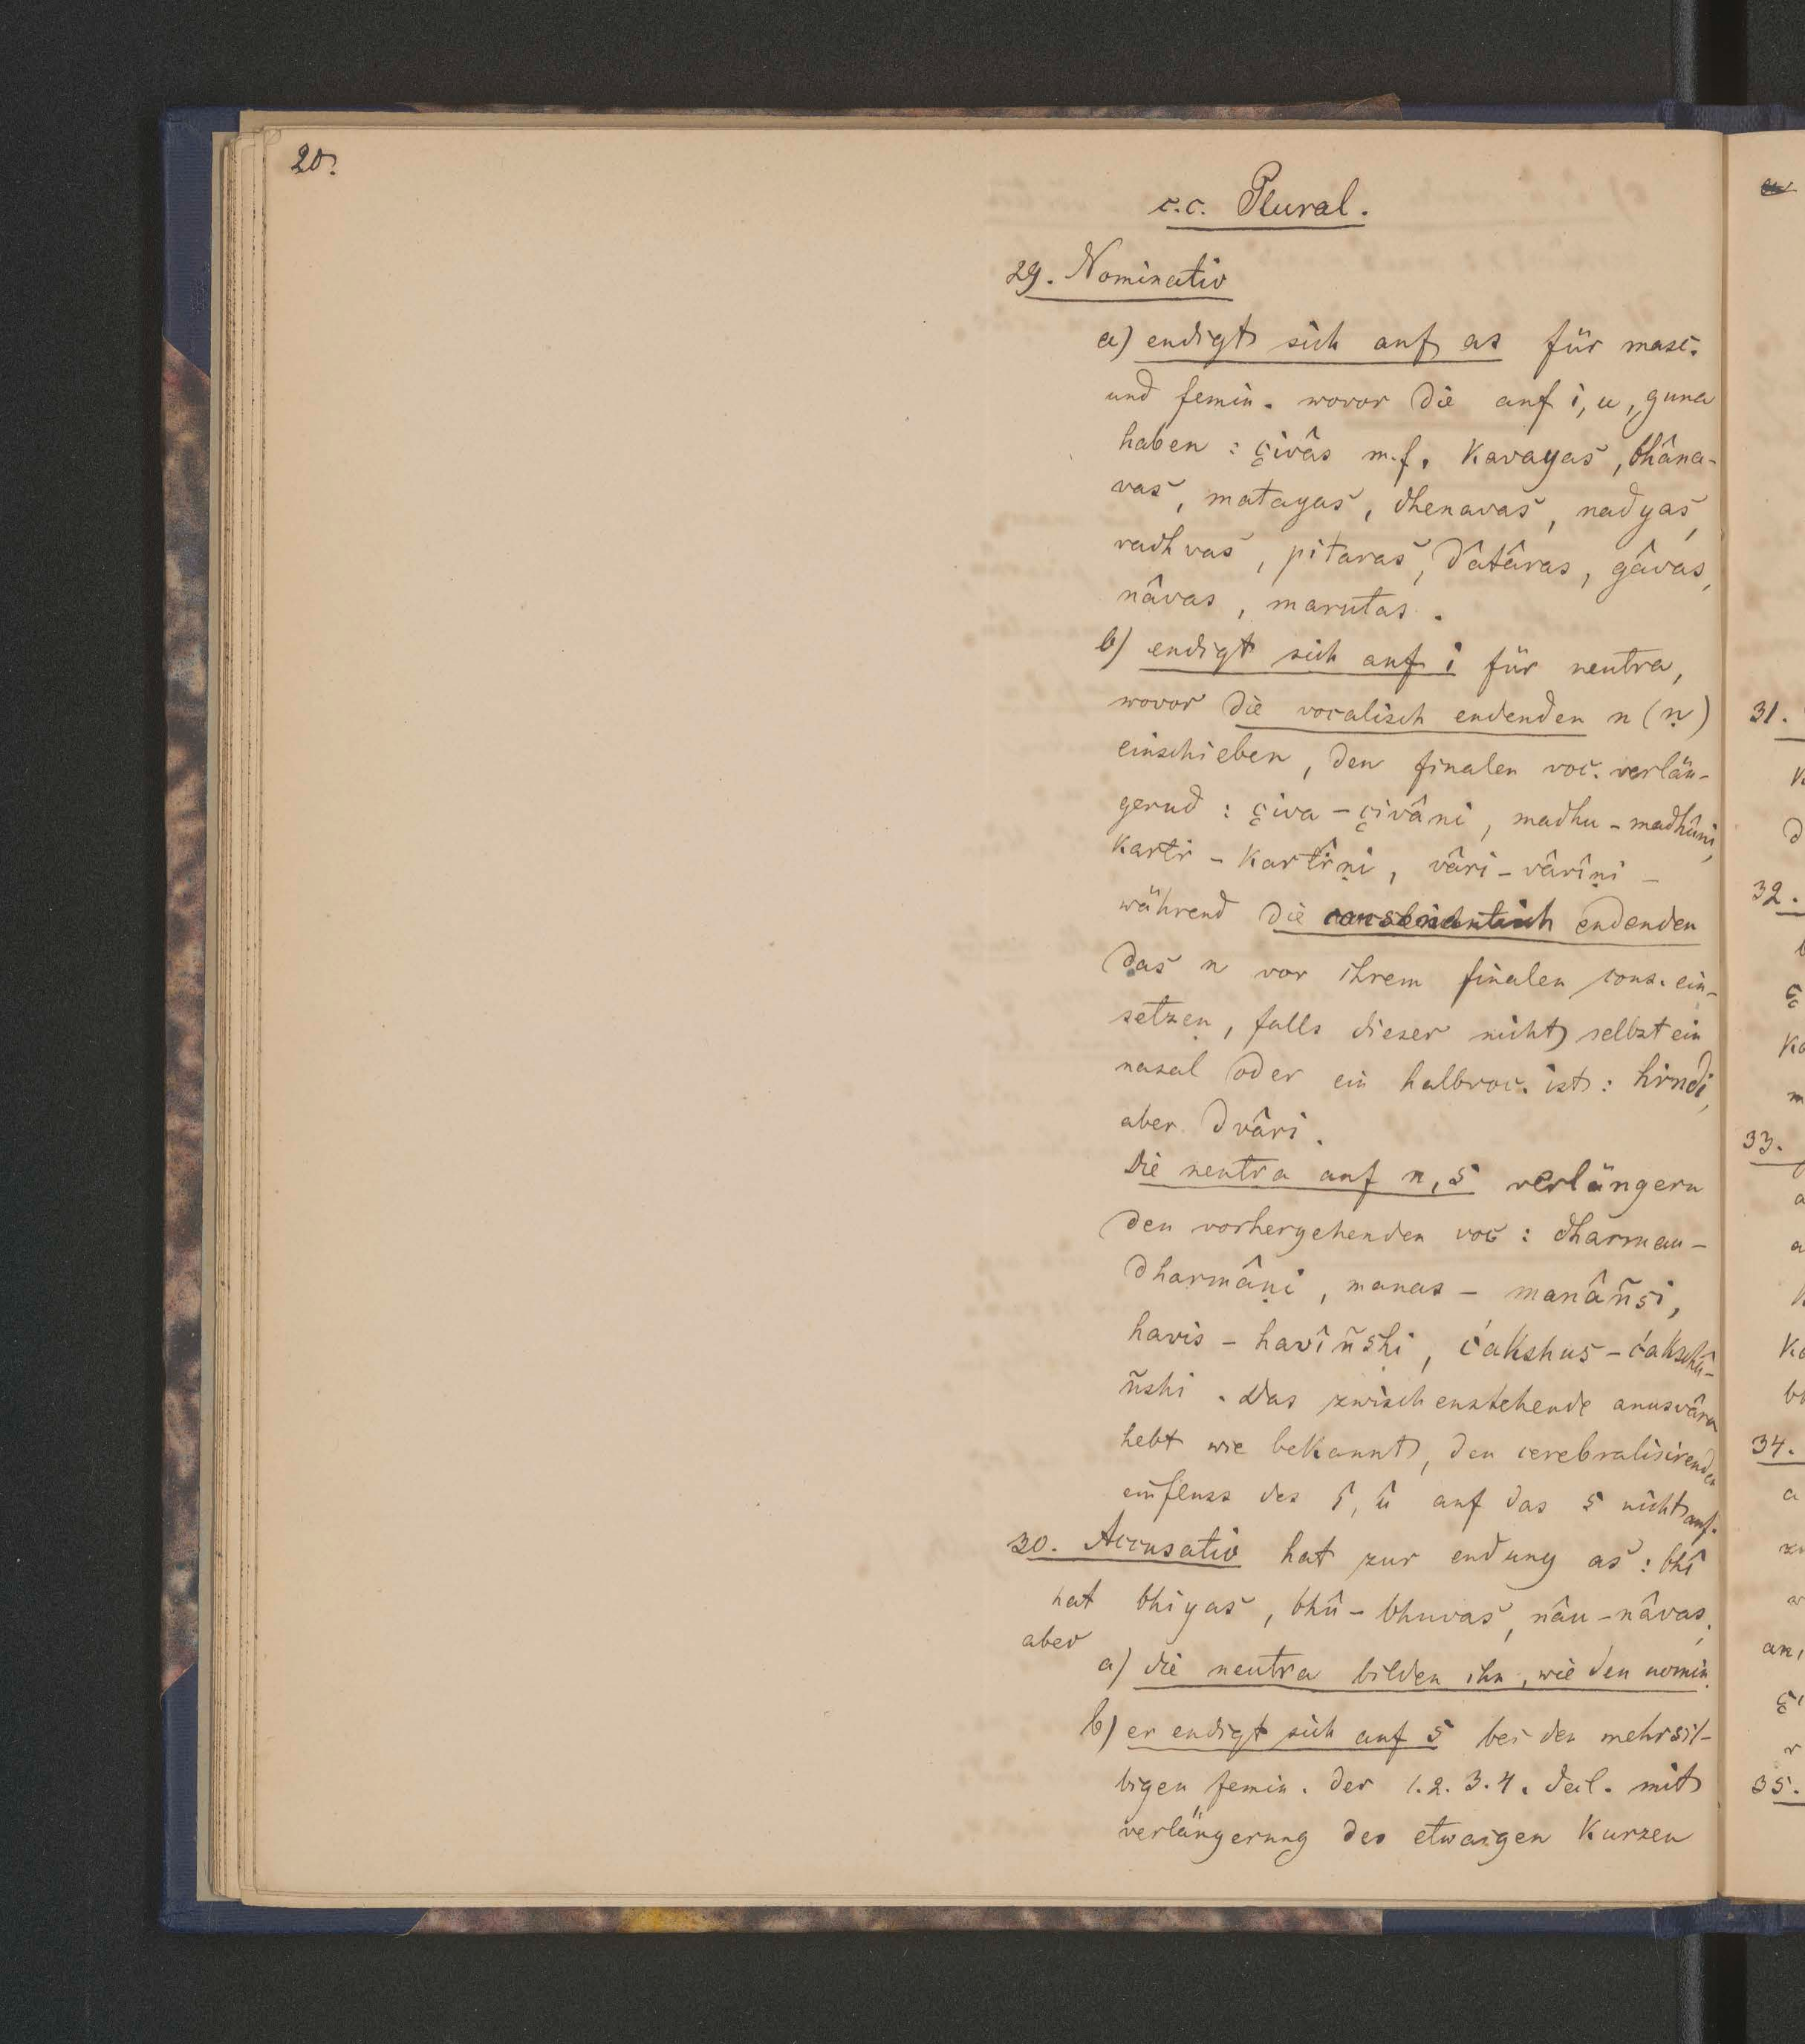 20.
c.c. Plural.
29. Nominativ
a) endigt sich auf as für masc.
und femin. wovor die auf i, u, guna
haben : çivâs m.f. kavayas, bhâna-
vas, matayas, dhenavas, nadyas,
vadhvas, pitaras, dâtâras, gâvas,
nâvas, marutas.
b) endigt sich auf i für neutra,
wovor die vocalisch endenden n (ṇ)
einschieben, den finalen voc. verlän-
gernd : çiva - çivâni, madhu - madhûni,
kartr - kartr̂ṇi, vâri - vârîṇi -
während die consonantisch endenden
das n vor ihrem finalen cons. ein-
setzen, falls dieser nicht selbst ein
nasal oder ein halbvoc. ist : hrndi,
aber dvâri.
Die neutra auf n, s verlängern
den vorhergehenden voc : dharman -
dharmâṇi, manas - manâñsi,
havis - havîñshi, ćakshus - ćakshû-
ñshi. Das zwischenstehende anusvâra
hebt wie bekannt, den cerebralisirenden
einfluss des î, û auf das s nicht auf.
30. Accusativ hat zur endung as : bhî
hat bhiyas, bhû - bhuvas, nâu - nâvas.
aber
a) die neutra bilden ihn, wie den nomin.
b) er endigt sich auf s bei den mehrsil-
bigen femin. der 1.2.3.4. decl. mit
verlängerung des etwaigen kurzen
31.
32.
33.
34.
35.